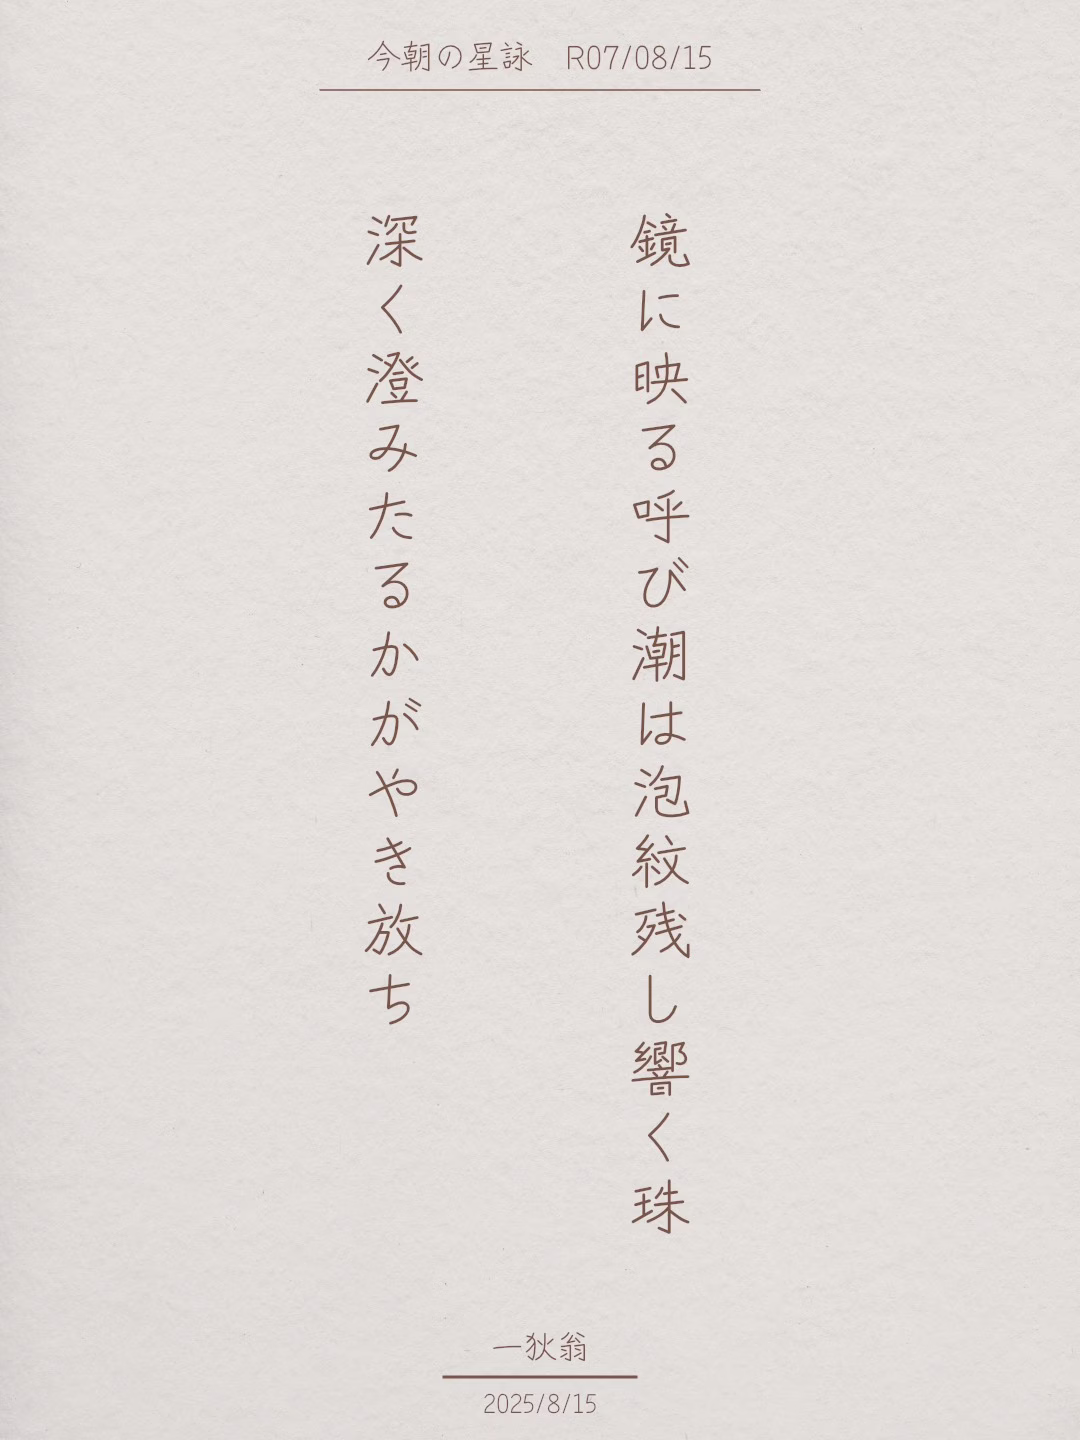 今朝の星詠　R07/08/15
鏡に映る呼び潮は泡紋残し響く珠
深く澄みたるかがやき放ち
一狄翁
2025/8/15